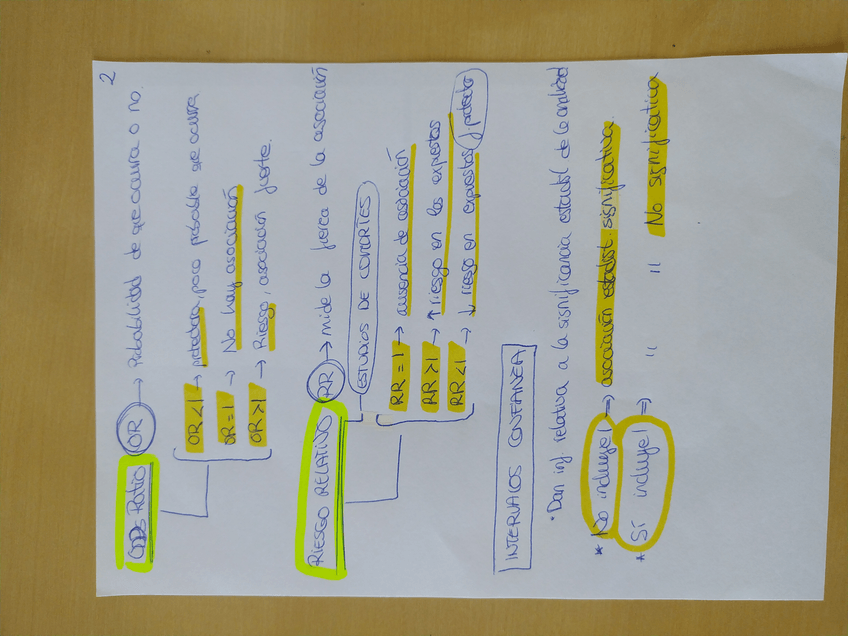 2
Odds Ratio (OR) → Probabilidad de que ocurra o no.
OR<1 → protector, poco probable que ocurra
OR=1 → No hay asociación
OR>1 → Riesgo, asociación fuerte.
RIESGO RELATIVO (RR) → mide la fuerza de la asociación
ESTUDIOS DE COHORTES
RR=1 → ausencia de asociación
RR>1 → ↑ riesgo en los expuestos
RR<1 → ↓ riesgo en expuestos y protector
INTERVALOS CONFIANZA
• Dan inf relativa a la significancia estadíst de la
* No incluye 1 ⇒ asociación estadíst. significativa.
* Sí incluye 1 ⇒ " " No significativa